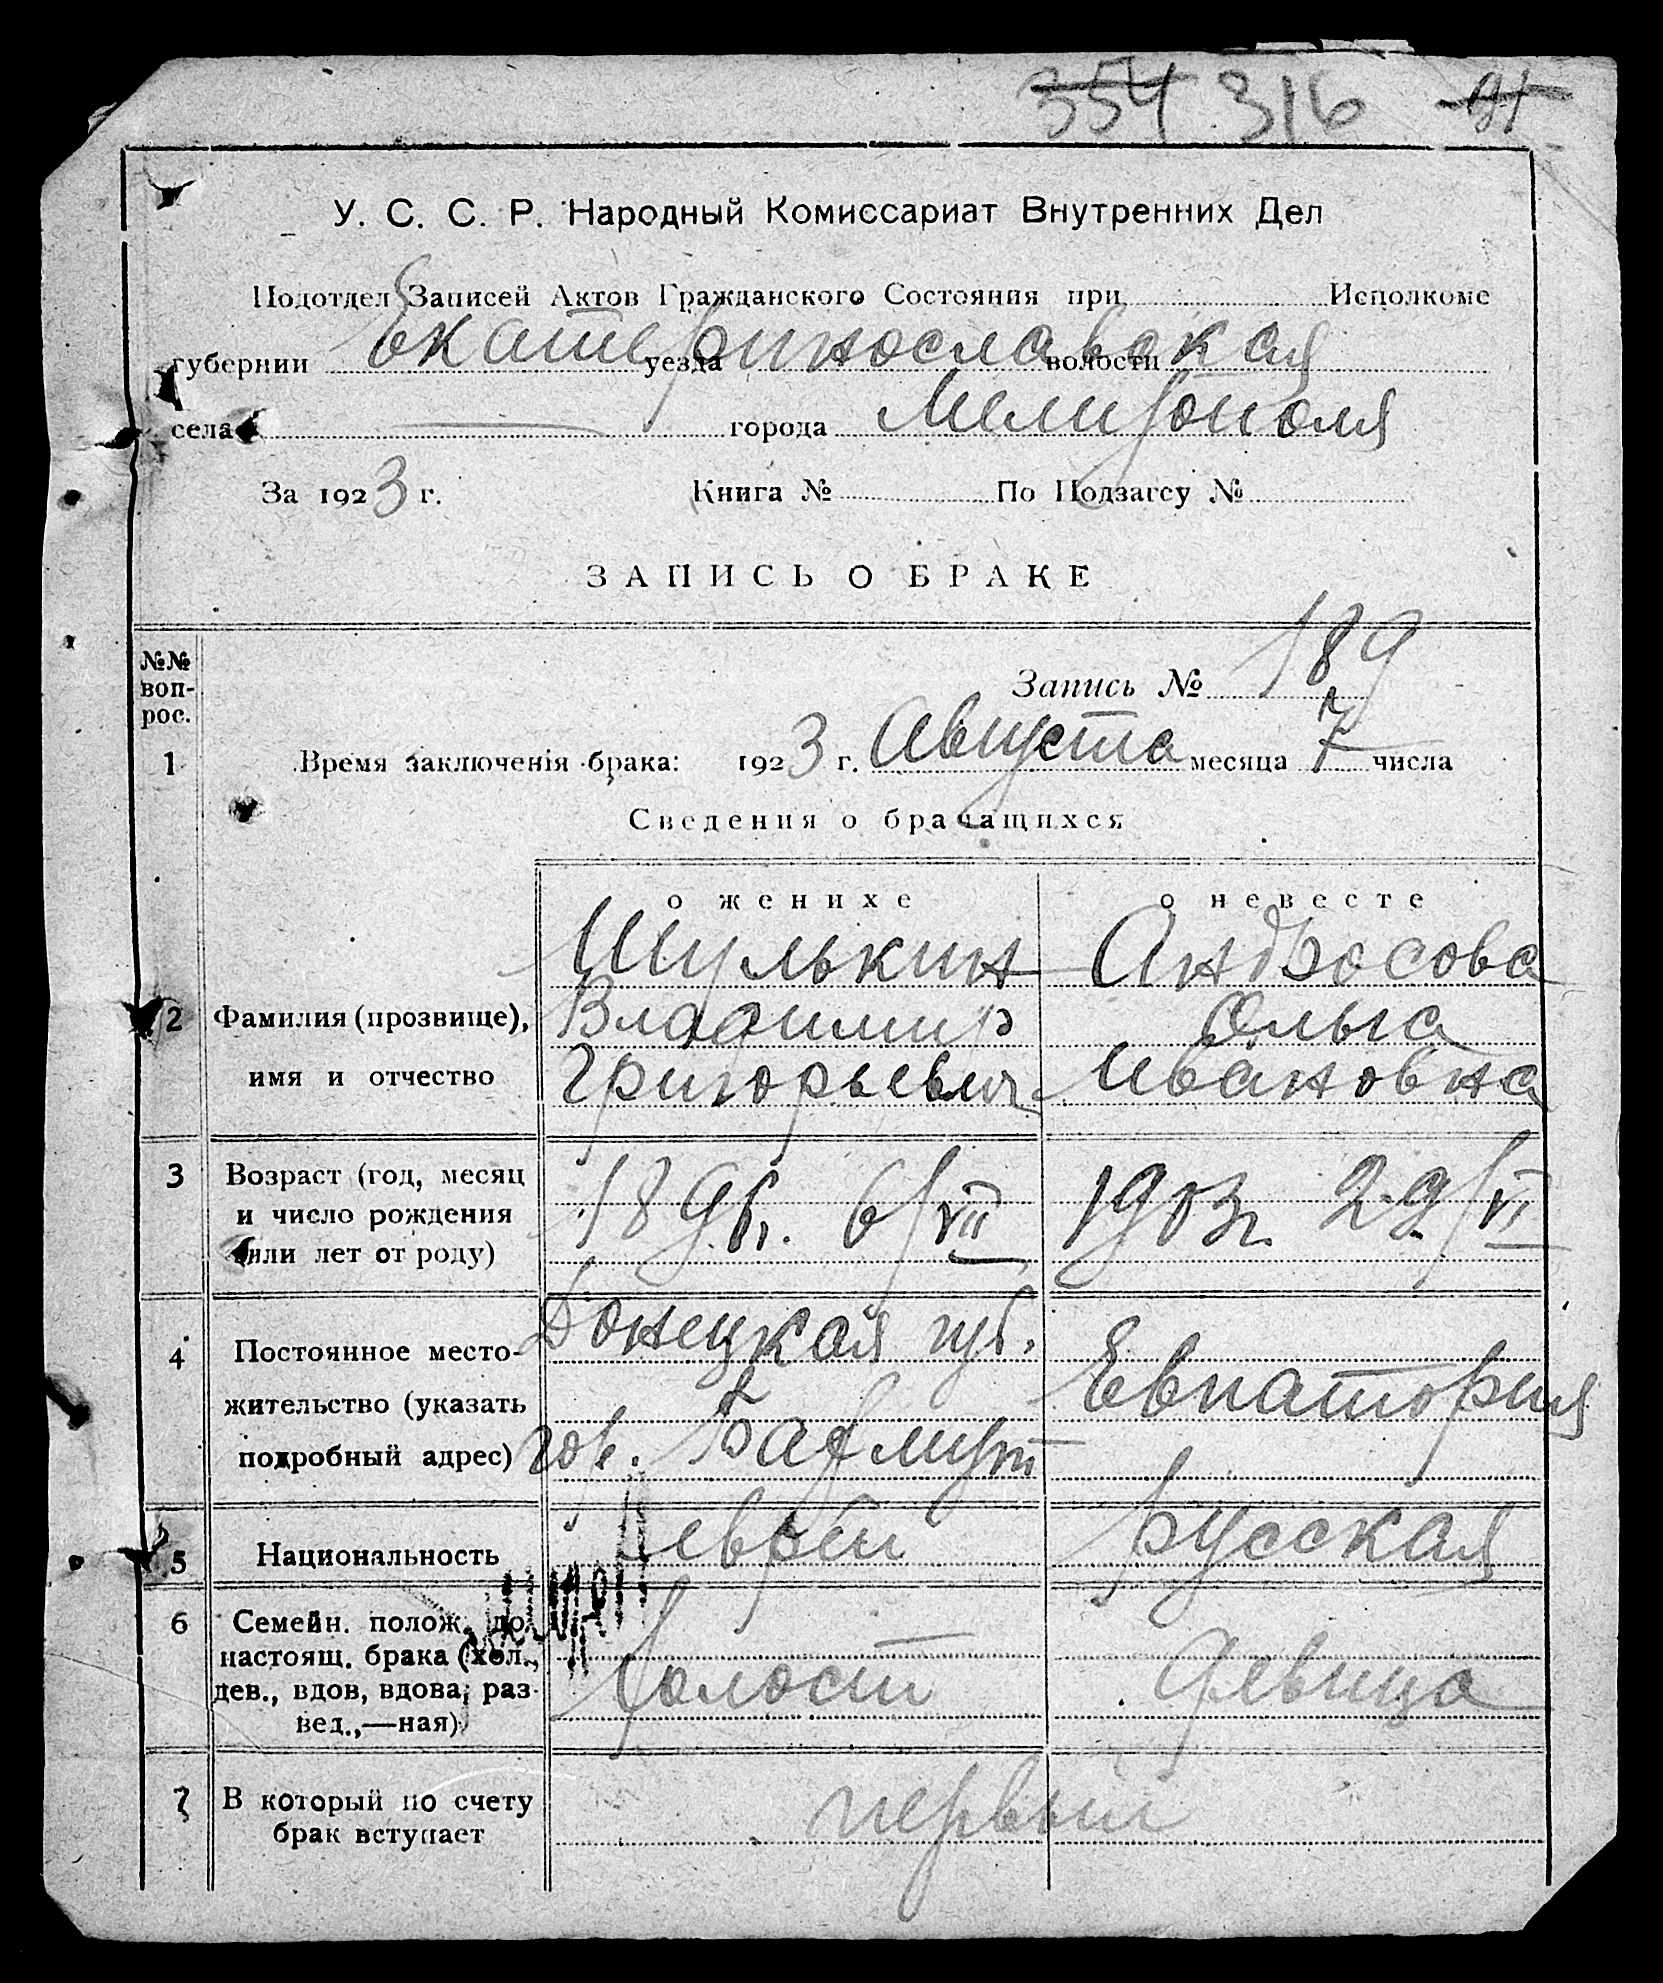 354 316
У. С. С. Р. Народный Комиссариат Внутренних Дел
Подотдел Записей Актов Гражданского Состояния при Исполкоме
губернии Екатеринославская уезда волости
села — города Мелитополя
За 1923 г. Книга № По Подзагсу №
ЗАПИСЬ О БРАКЕ
№№ воп-рос.
Запись № 189
1 Время заключенія брака: 1923 г. Августа месяца 7 числа
Сведения о брачащихся
о женихе о невесте
Шулькин Андросова
2 Фамилия (прозвище), Владимир Ольга
имя и отчество Григорьевич Ивановна
3 Возраст (год, месяц
и число рождения 1896г. 6/VII 1903г. 29/VI
или лет от роду)
Донецкая губ.
4 Постоянное место-
жительство (указать Евпатория
подробный адрес) гор. Бахмут
5 Национальность еврей русская
6 Семейн. полож. до
настоящ. брака (хол.,
дев., вдов, вдова, раз- холост девица
вед.,—ная)
7 В который по счету первый
брак вступает